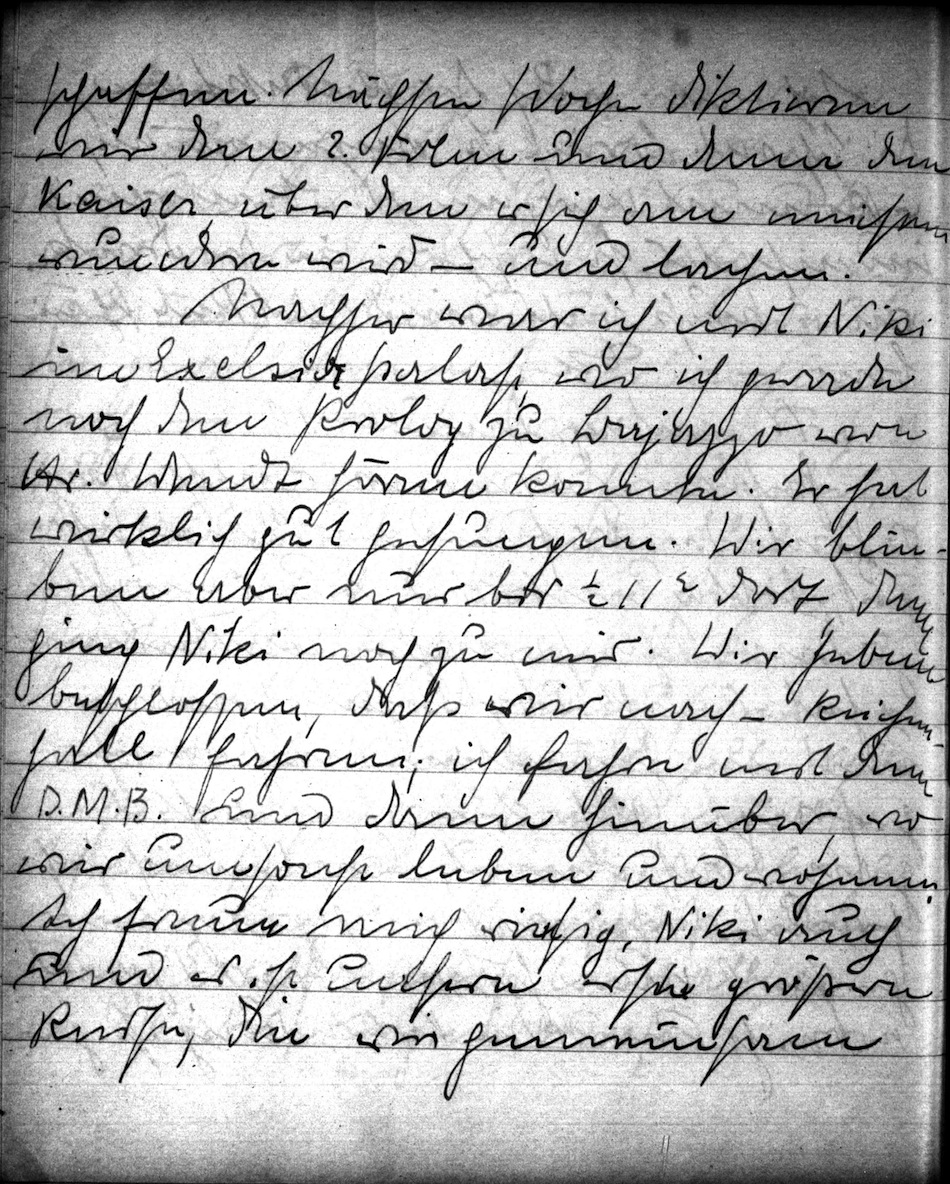 schaffen. Nächste Woche diktieren
wir den 2. Film und dann den
Kaiser, über den er sich am meisten
wundern wird – und lachen.
Nachher war ich mit Niki
im Excelsiorpalast, wo ich gerade
noch den Prolog zu Bajazzo von
Hr. Wendt hören konnte. Er hat
wirklich gut gesungen. Wir blie-
ben aber nur bis ½ 11ʰ dort, dann
ging Niki noch zu mir. Wir haben
beschlossen, dass wir nach – Reichen-
hall fahren; ich fahre mit dem
D.M.B. und dann hinüber, wo
wir umsonst leben und wohnen.
Ich freue mich riesig, Niki auch
und es ist unsere erste größere
Reise, die wir gemeinsam